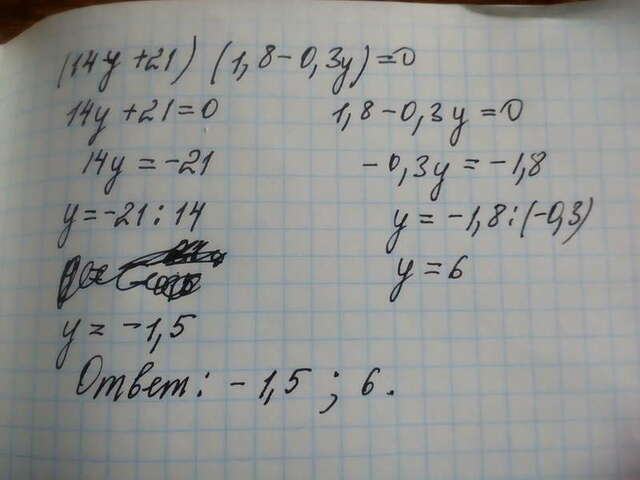 (14y+21) (1,8-0,3y)=0
14y+21=0 1,8-0,3y=0
14y=-21 -0,3y=-1,8
y=-21:14 y=-1,8:(-0,3)
y=6
y=-1,5
Ответ: -1,5; 6.